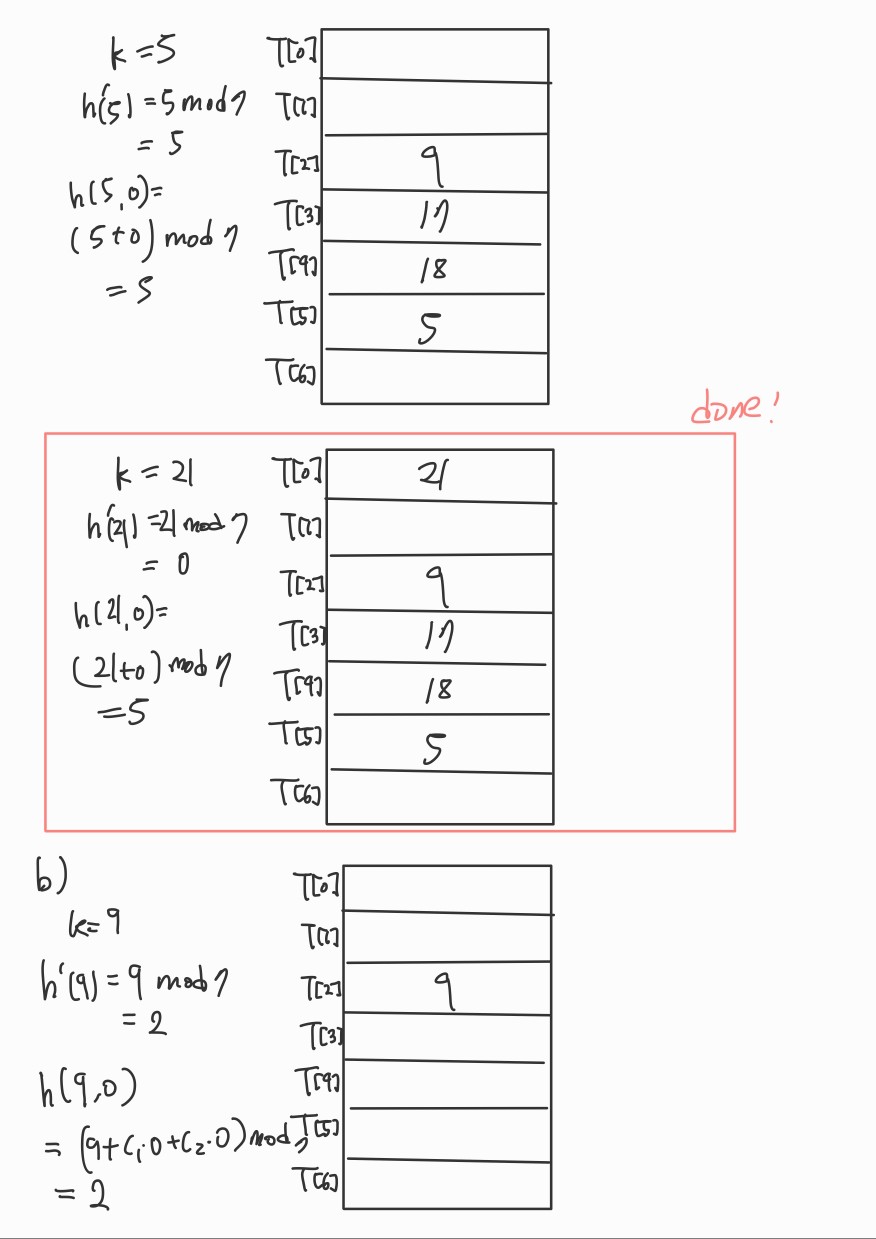 k = 5
h'(5) = 5 mod 7
= 5
h(5,0) =
(5+0) mod 7
= 5
T[0]
T[1]
T[2] 9
T[3] 17
T[4] 18
T[5] 5
T[6]
done!
k = 21
h'(21) = 21 mod 7
= 0
h(21,0) =
(21+0) mod 7
= 5
T[0] 21
T[1]
T[2] 9
T[3] 17
T[4] 18
T[5] 5
T[6]
b)
k = 9
h'(9) = 9 mod 7
= 2
h(9,0)
= (9+C₁·0+C₂·0) mod 7
= 2
T[0]
T[1]
T[2] 9
T[3]
T[4]
T[5]
T[6]